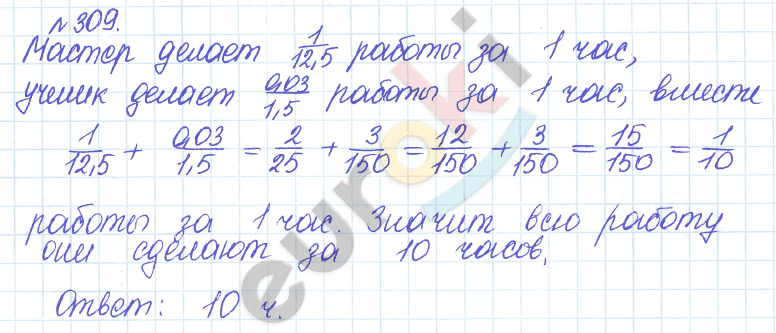 №309.
Мастер делает 1/12,5 работы за 1 час,
ученик делает 0,03/1,5 работы за 1 час, вместе
1/12,5 + 0,03/1,5 = 2/25 + 3/150 = 12/150 + 3/150 = 15/150 = 1/10
работы за 1 час. Значит всю работу
они сделают за 10 часов.
Ответ: 10 ч.
euroki